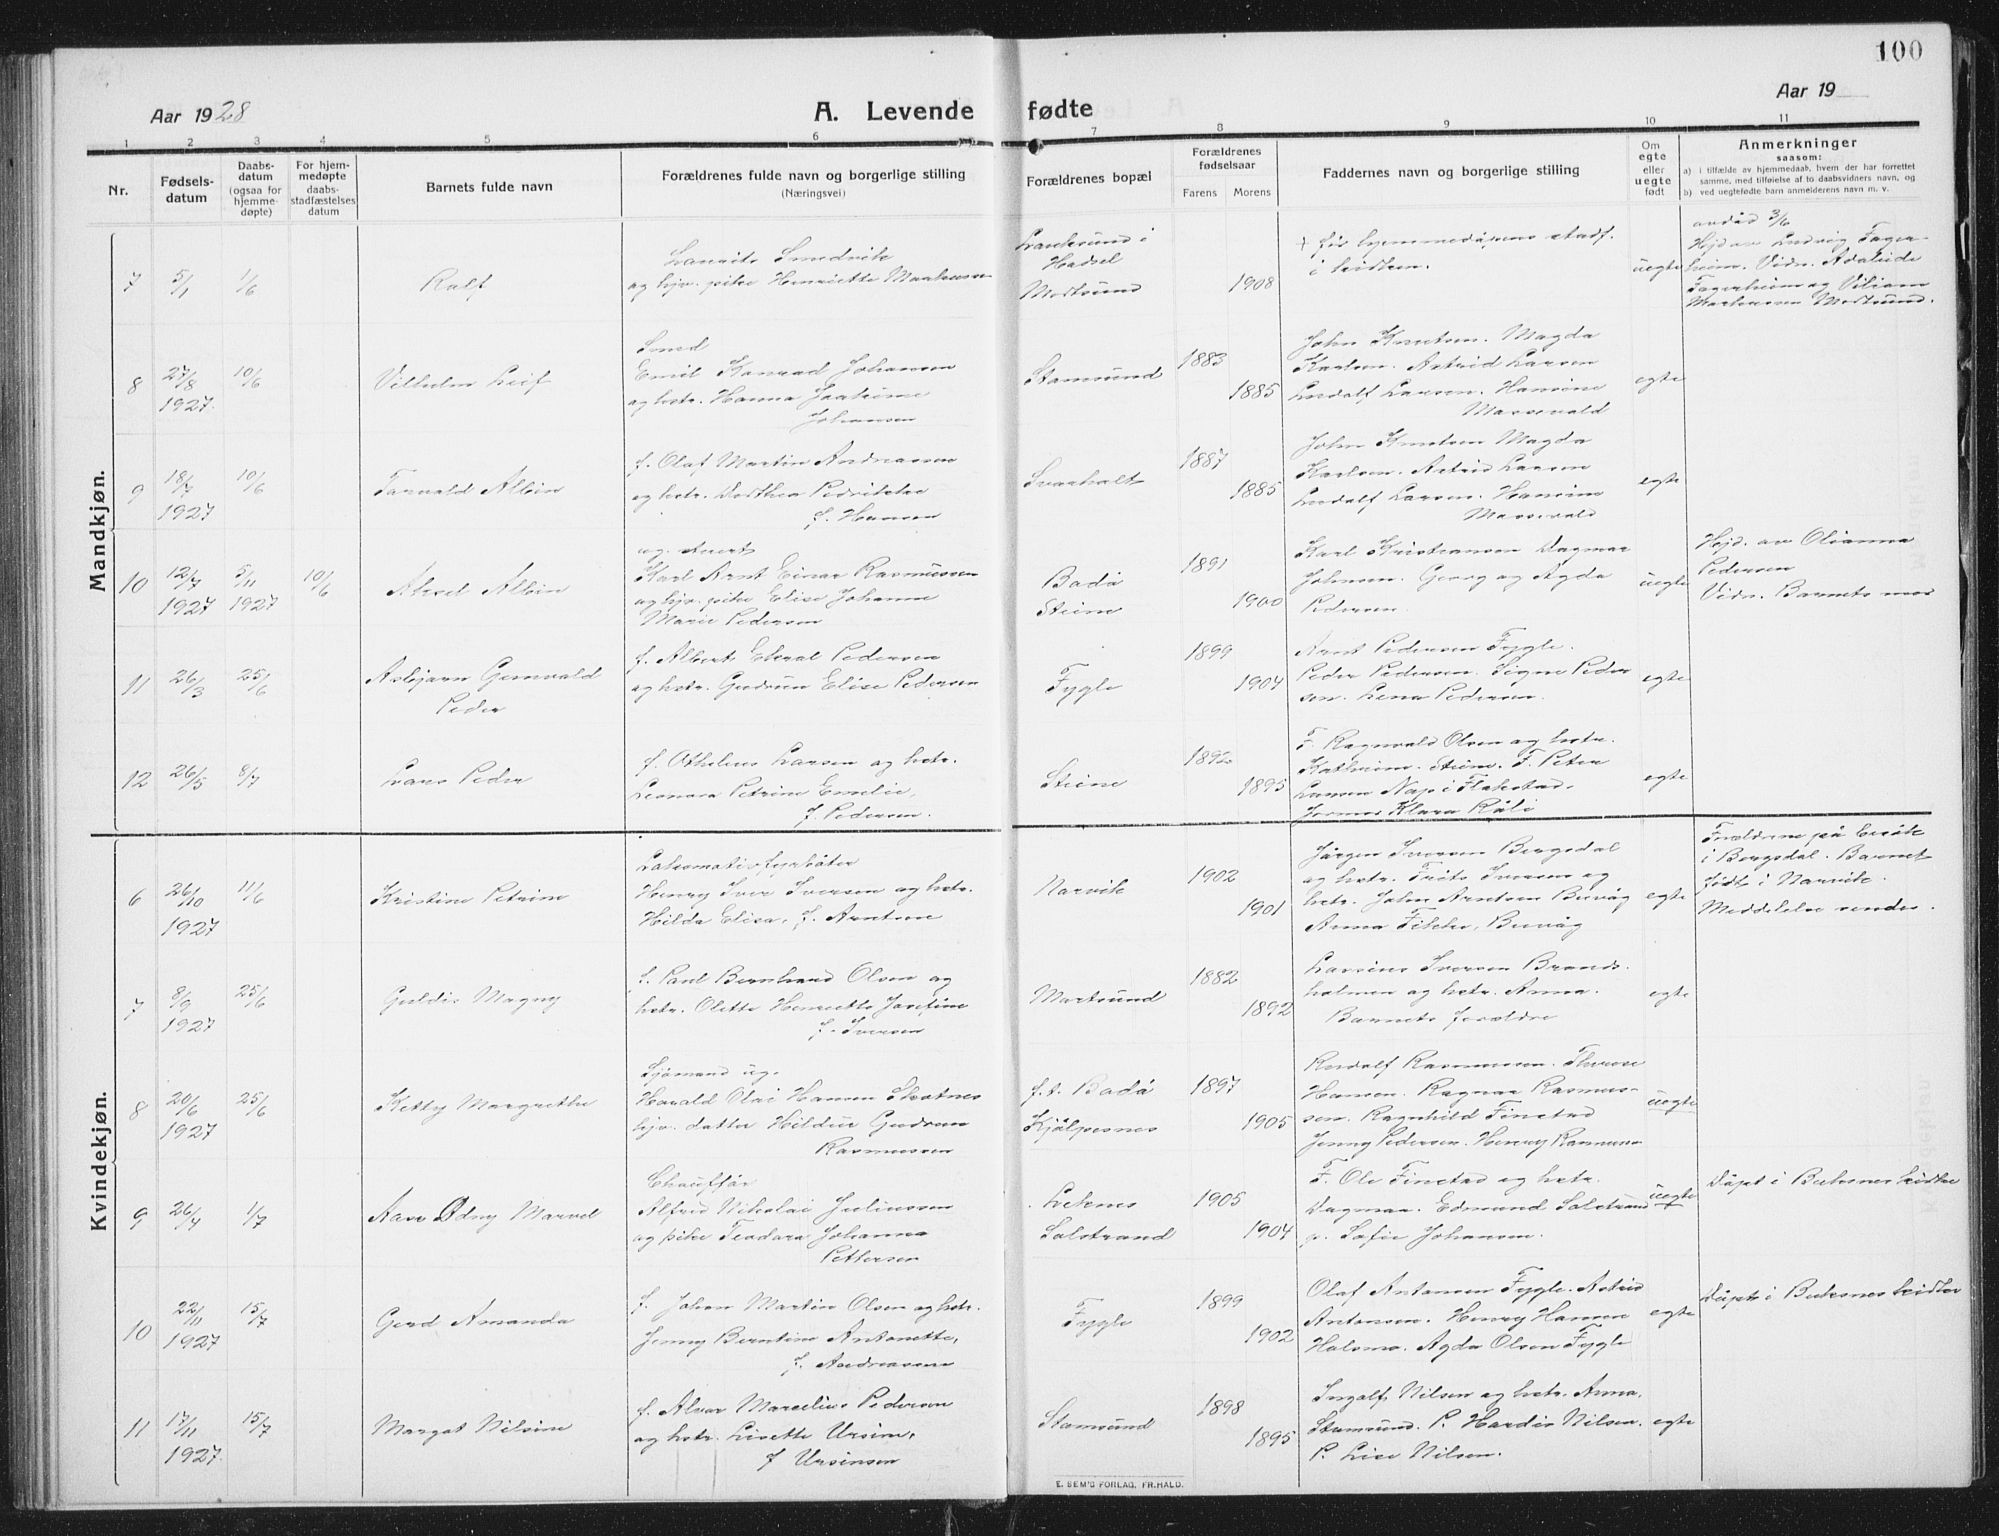 100
Aar 1928
A. Levende fødte
Aar 19
1 2 3 4 5 6 7 8 9 10 11
Nr.
Fødsels-
datum
Daabs-
datum
(ogsaa for
hjemme-
døpte)
For hjem-
medøpte
daabs-
stadfæstelses
datum
Barnets fulde navn
Forældrenes fulde navn og borgerlige stilling
(Næringsvei)
Forældrenes bopæl
Forældrenes
fødselsaar
Farens Morens
Faddernes navn og borgerlige stilling
Om
egte
eller
uegte
født
Anmerkninger
saasom:
a) i tilfælde av hjemmedaab, hvem der har forrettet
samme, med tilføielse af to daabsvidners navn, og
b) ved uegtefødte barn anmelderens navn m. v.
Mandkjøn.
7 5/1 1/6 Ralf
Laurits Smedvik
og hjv. pike Henriette
Hadsel
Mortsund
1908
før hjemmedåpens stadf.
i kirken.
uegte
3/6
Hejd av Ludvig Fager-
heim. Vidn. Adelaide
Fagerheim og Viliam
Mortsund.
8 27/8 1927. 10/6 Vilhelm Leif
Smed
Emil Konrad Johansen
og hstr. Hanna
Johansen
Stamsund
1883
1885
John Knutsen. Magda
Karlsen. Astrid Larsen
Ludolf Larsen. Hansine
Massevald
egte
9 18/7 1927 10/6 Torvald Albin
f. Olaf Martin Andreassen
og hstr. Dorthea
f. Hansen
Svarholt
1887
1885
John Knutsen Magda
Karlsen. Astrid Larsen
Ludolf Larsen. Hansine
Massevald
egte
10 12/7 1927 5/11 1927 10/6 Aksel Albin
Karl Arnt Einar Rasmussen
og hjv. pike Elise Johanne
Marie Pedersen
Badå
Steine
1891
1900
Karl Kristiansen Dagmar
Johnsen. Georg og Agda
Pedersen.
uegte
Hejd. av Olianna
Pedersen
Vidn. Barnets mor
11 26/3 25/6 Asbjørn Gunvald
Peder
f. Albert Edval Pedersen
og hstr. Gudrun Elise Pedersen
Fygle
1899
1904
Arnt Pedersen Fygle.
Peder Pedersen. Signe Peder
sen. Lena Pedersen.
egte
12 26/5 8/7 Lars Peder
f. Othelius Larsen og hstr.
Leonora Petrine Emelie,
f. Pedersen.
Steine
1892
1895
F. Ragnvald Olsen og hstr.
Kathrine. Steine. F. Peter
Larsen Nap i Flakstad.
Klara Råli
egte
Kvindekjøn.
6 26/10 1927 11/6 Kristine Petrine
Lokomotivfyrbøter
Henry Iver Iversen og hstr.
Hilda Elisa, f. Arntsen
Narvik
1902
1901
Jørgen Iversen Bergsdal
og hstr. Frits Iversen og
hstr. John Arntsen Buvåg
Anna Fikke, Buvåg
egte
Forældrene på besøk
i Borgsdal. Barnet
født i Narvik.
Meddelelse sendes.
7 8/9 1927 25/6 Guldis Magny
f. Paul Bernhard Olsen og
hstr. Olette Henriette Josefine
f. Iversen
Mortsund
1882
1892
Lassins Iversen Brands.
holmen og hstr. Anna.
Barnets forældre
egte
8 20/6 1927 25/6 Ketty Margrethe
Sjømand ug.
Harald Olai Hansen Skotnes
hjv. datter Hildur Gudrun
Rasmussen
f.t. Badå
Kjølpesnes
1897
1905
Rudolf Rasmussen. Therese
Hansen. Ragnar Rasmus-
sen. Ragnhild Finstad
Jenny Pedersen. Henry Rasmussen
uegte
9 26/4 1/7 Aase Odny Marvel
Chauffør
Alfred Nikolai Juliussen
og pike Teodora Johanna
Pettersen
Leknes
Solstrand
1905
1904
F. Ole Finstad og hstr.
Dagmar. Edmund Solstrand
og Sofie Johansen.
uegte
Døpt i Buksnes kirke
10 22/11 1927 15/7 Gerd Amanda
f. Johan Martin Olsen og hstr.
Jenny Berntine Antonette,
f. Andreassen
Fygle
1899
1902
Olaf Antonsen Fygle. Astrid
Antonsen. Henry Hansen
Holsmo. Agda Olsen Fygle
egte
Døpt i Buksnes kirke
11 17/11 1927. 15/7 Margot Nilsine
f. Alvar Marcelius Pedersen
og hstr. Lisette Ursine,
f Ursinsen
Stamsund
1898
1895
Ingolf Nilsen og hstr. Anna,
Stamsund. P. Hardis Nilsen.
P. Lise Nilsen.
egte
E. SEM'S FORLAG, FR.HALD.